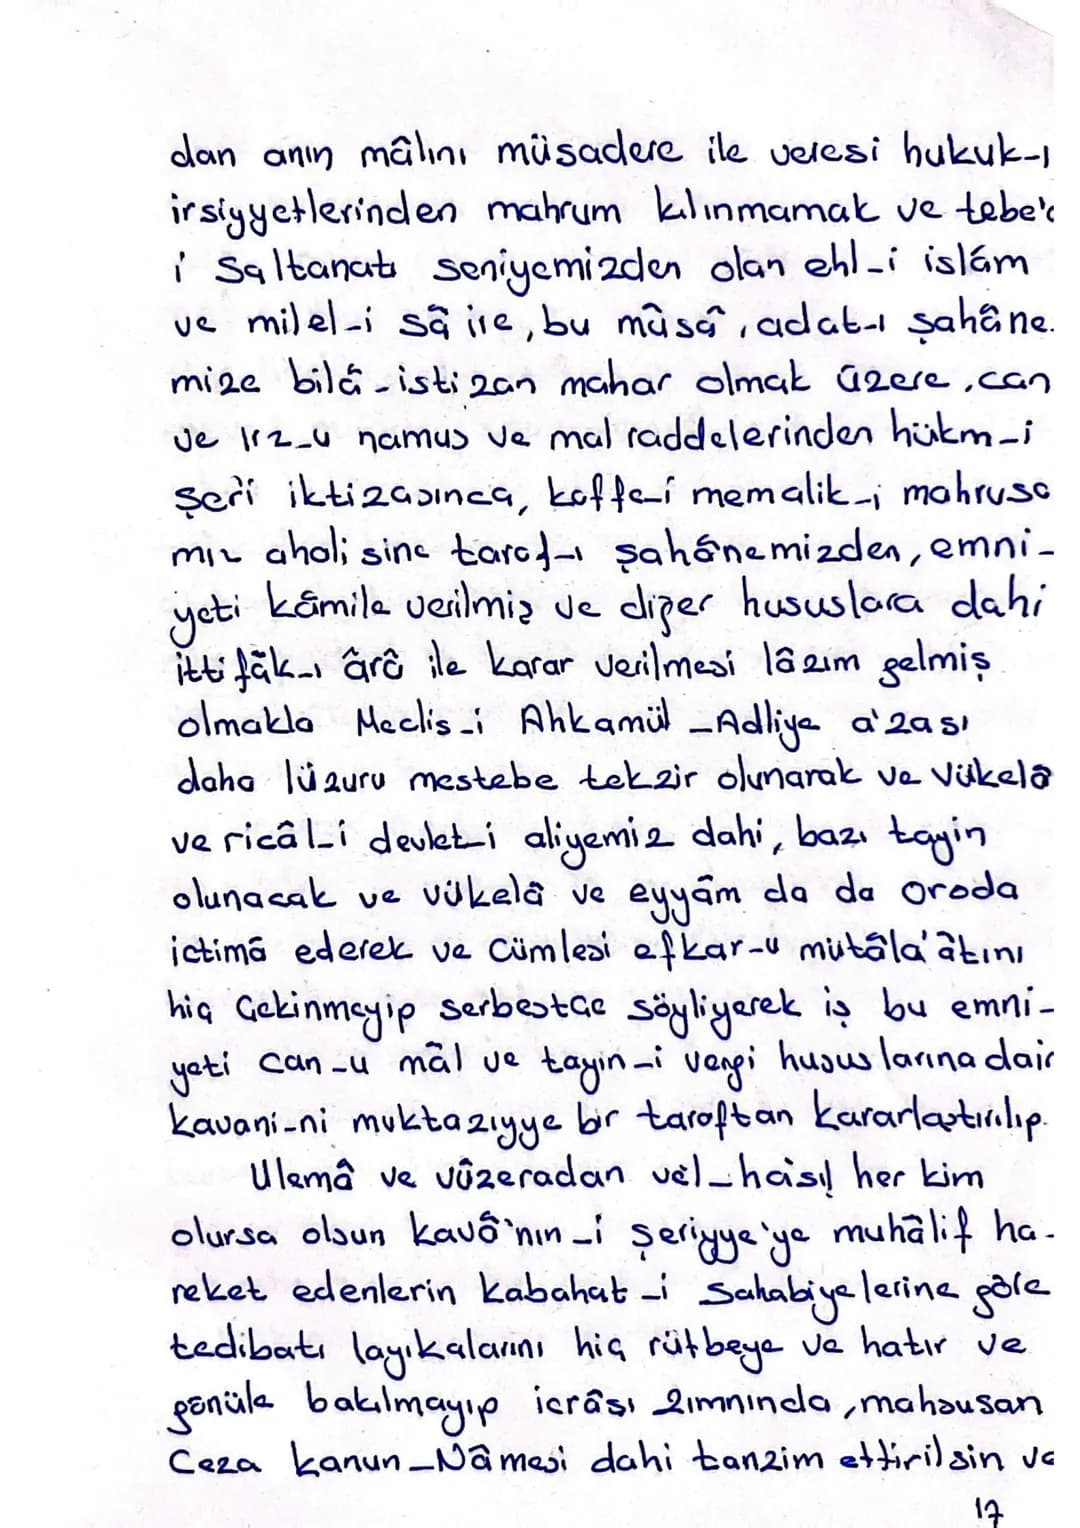 dan anın mâlını müsadere ile veresi hukuk-ı
irsiyyetlerinden mahrum kılınmamak ve tebe'a
i Saltanatı seniyemizden olan ehl-i islâm
ve milel-i sâ ire, bu mâsâ, adat-ı şahâne.
mize bilâ-istizan mahar olmak üzere, can
ve ırz-u namus ve mal raddelerinden hükm-i
şeri iktizasınca, kaffe-i memalik-i mahrusa
mız aholi sine taraf-ı şahânemizden, emni-
yeti kâmile verilmiş ve diğer hususlara dahi
ittifâk-ı ârâ ile karar verilmesi lâzım gelmiş
olmakla Meclis-i Ahkamül-Adliye a'zası
daha lüzuru mestebe tekzir olunarak ve Vükelâ
ve ricâl-i devlet-i aliyemiz dahi, bazı tayin
olunacak ve vükelâ ve eyyâm da da orada
ictimâ ederek ve Cümlesi efkar-u mutâla'âtını
hiç Çekinmeyip serbestçe söyliyerek iş bu emni-
yeti can-u mâl ve tayin-i vergi huşuslarına dair
kavani-ni muktazıyye bir taraftan kararlaştırılıp.
Ulemâ ve vüzeradan vel-hasıl her kim
olursa olsun kavâ'nın-i şeriyye'ye muhâlif ha-
reket edenlerin kabahat-i sahabiyelerine göre
tedibatı layıkalarını hiç rütbeye ve hatır ve
gönüle bakılmayıp icrâsı zımnında, mahsusan
Ceza kanun-Nâmesi dahi tanzim ettirilsin ve
17